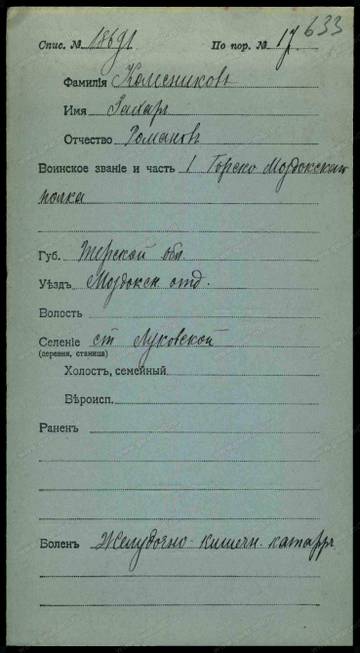 633
Спис. № 18691 По пор. № 17
Фамилія Колесниковъ
Имя Захаръ
Отчество Романовъ
Воинское званіе и часть 1 Горско Моздокскаго
полка
Губ. Терской обл.
Уѣздъ Моздокск отд.
Волость
Селеніе ст Луковской
(деревня, станица)
Холост, семейный
Вѣроисп.
Раненъ
Боленъ Желудочно-кишечн. катарръ